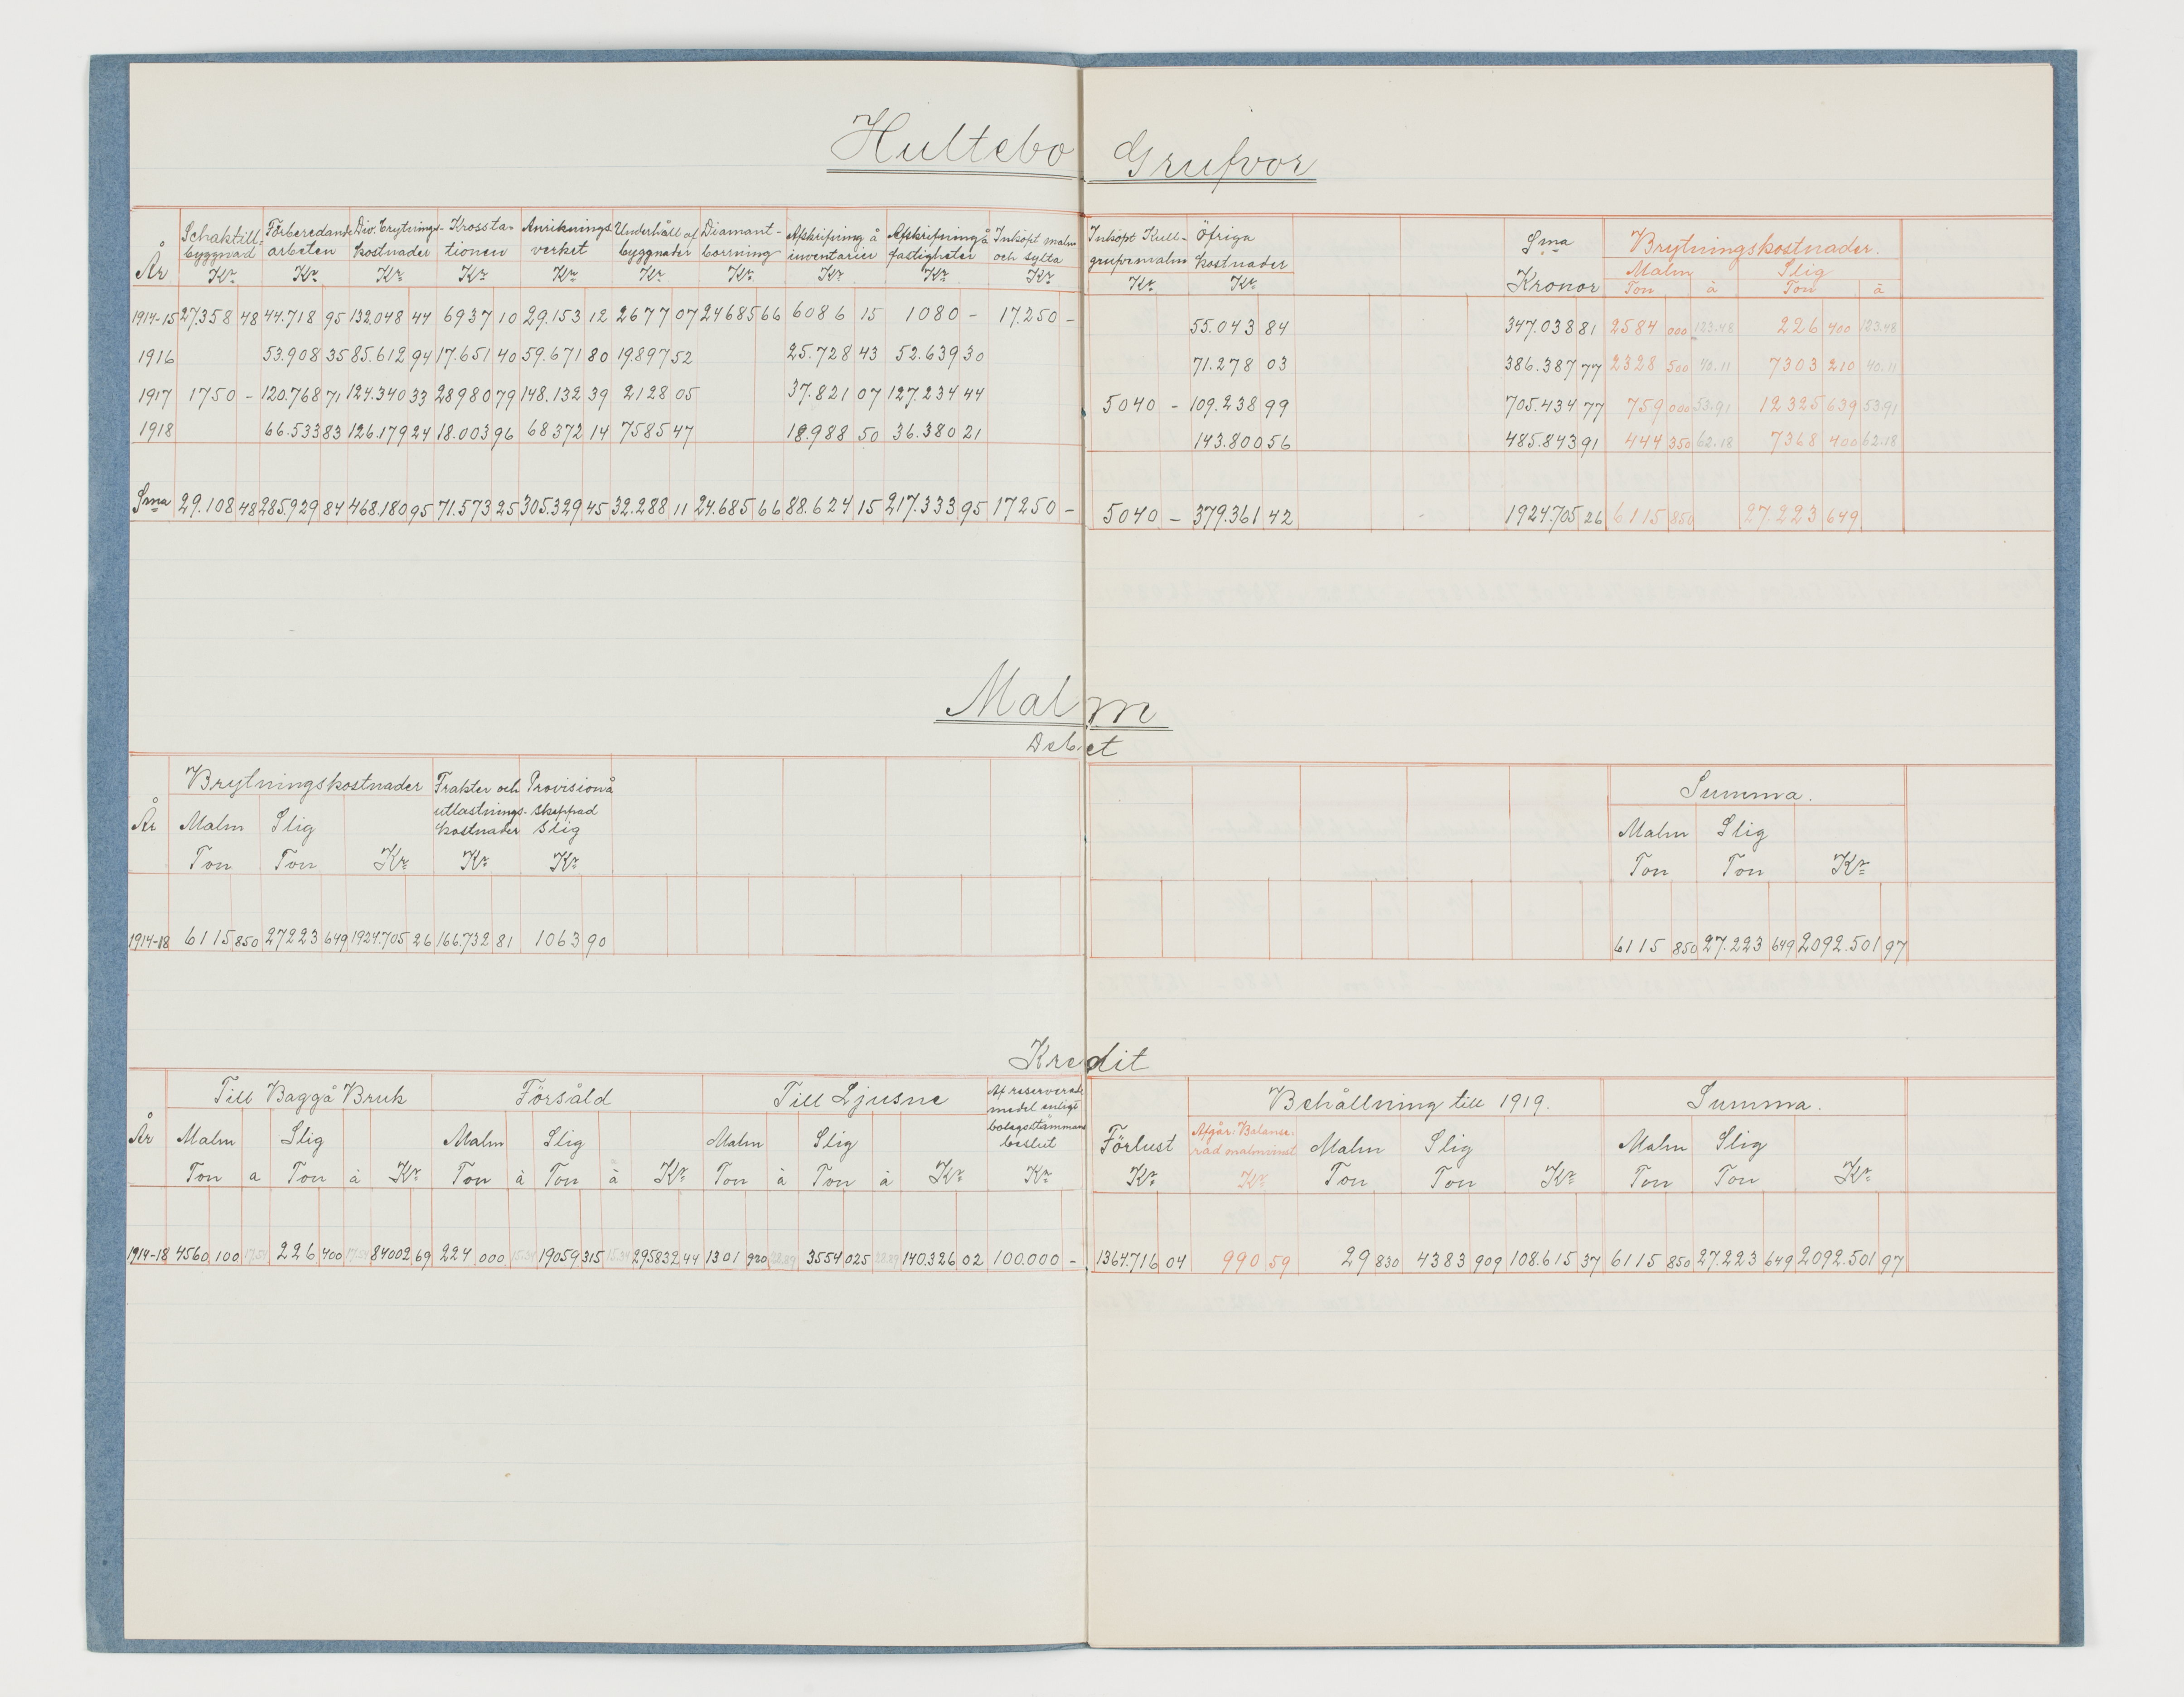 Hultebo Grufvor
År Schaktill- byggnad Kr Förberedande arbeten Kr Div. brytnings- kostnader Kr Krossta- tionen Kr Anriknings verket Kr Underhåll af byggnader Kr Diamant- borrning Kr Afskrifning å inventarier Kr Afskrifning å fastigheter Kr Inköpt malm och sylta Kr Inköpt Kull- grufvemalm Kr Öfriga kostnader Kr Sma Kronor Brytningskostnader. Malm Ton à Slig Ton à
1914-15 27.358 48 44.718 95 132.048 44 6937 10 29.153 12 2677 07 24685 66 6086 15 1080 - 17.250 - 55.043 84 347.038 81 2584 000 123.48 226 400 123.48
1916 53.908 35 85.612 94 17.651 40 59.671 80 19.897 52 25.728 43 52.639 30 71.278 03 386.387 77 2328 500 40.11 7303 210 40.11
1917 1750 - 120.768 71 124.340 33 28980 79 148.132 39 2128 05 37.821 07 127.234 44 5040 - 109.238 99 705.434 77 759 000 53.91 12325 639 53.91
1918 66.533 83 126.179 24 18.003 96 68372 14 7585 47 18.988 50 36.380 21 143.800 56 485.843 91 444 350 62.18 7368 400 62.18
Sma 29.108 48 285.929 84 468.180 95 71.573 25 305.329 45 32.288 11 24.685 66 88.624 15 217.333 95 17250 - 5040 - 379.361 42 1924.705 26 6115 850 27.223 649
Malm
Debet
År Brytningskostnader Malm Ton Slig Ton Kr Frakter och utlastnings- kostnader Kr Provision å skeppad slig Kr Summa. Malm Ton Slig Ton Kr
1914-18 6115 850 27223 649 1924.705 26 166.732 81 1063 90 6115 850 27.223 649 2092.501 97
Kredit
År Till Baggå Bruk Malm Ton a Slig Ton à Kr Försåld Malm Ton à Slig Ton à Kr Till Ljusne Malm Ton à Slig Ton à Kr Af reserverade medel enligt bolagsstämmans beslut Kr Förlust Kr Behållning till 1919. Afgår: Balanse- rad malmvinst Kr Malm Ton Slig Ton Kr Summa. Malm Ton Slig Ton Kr
1914-18 4560 100 226 400 84002 69 224 000 19059 315 295832 44 1301 920 3554 025 140.326 02 100.000 - 1364.716 04 990 59 29 830 4383 909 108.615 37 6115 850 27.223 649 2092.501 97